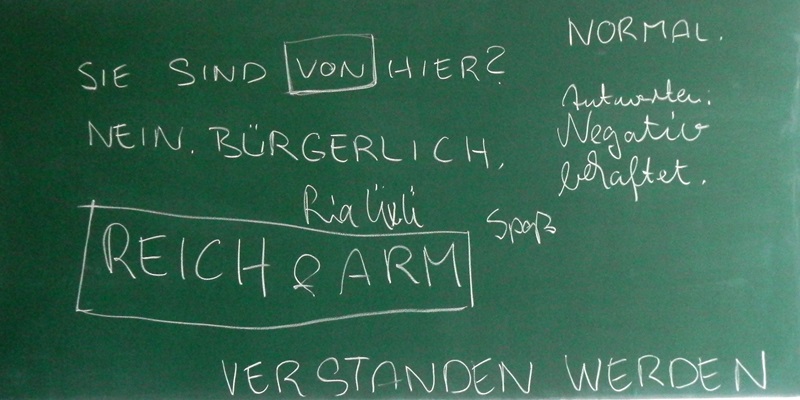 SIE SIND VON HIER?
NEIN. BÜRGERLICH.
Ria
REICH & ARM
Spaß
NORMAL.
Antworten:
Negativ
behaftet.
VERSTANDEN WERDEN